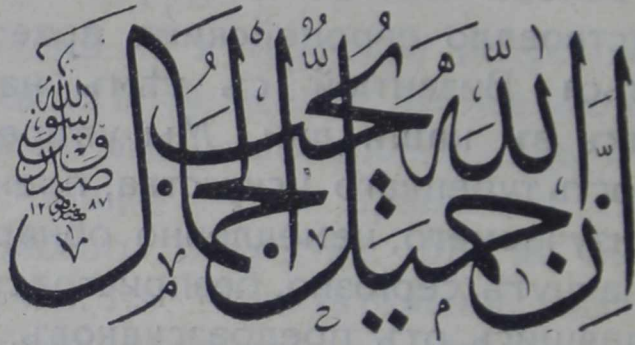 إِنَّ اللّٰهَ جَمِيلٌ يُحِبُّ الْجَمَالَ
صدق رسول الله
١٢٨٧